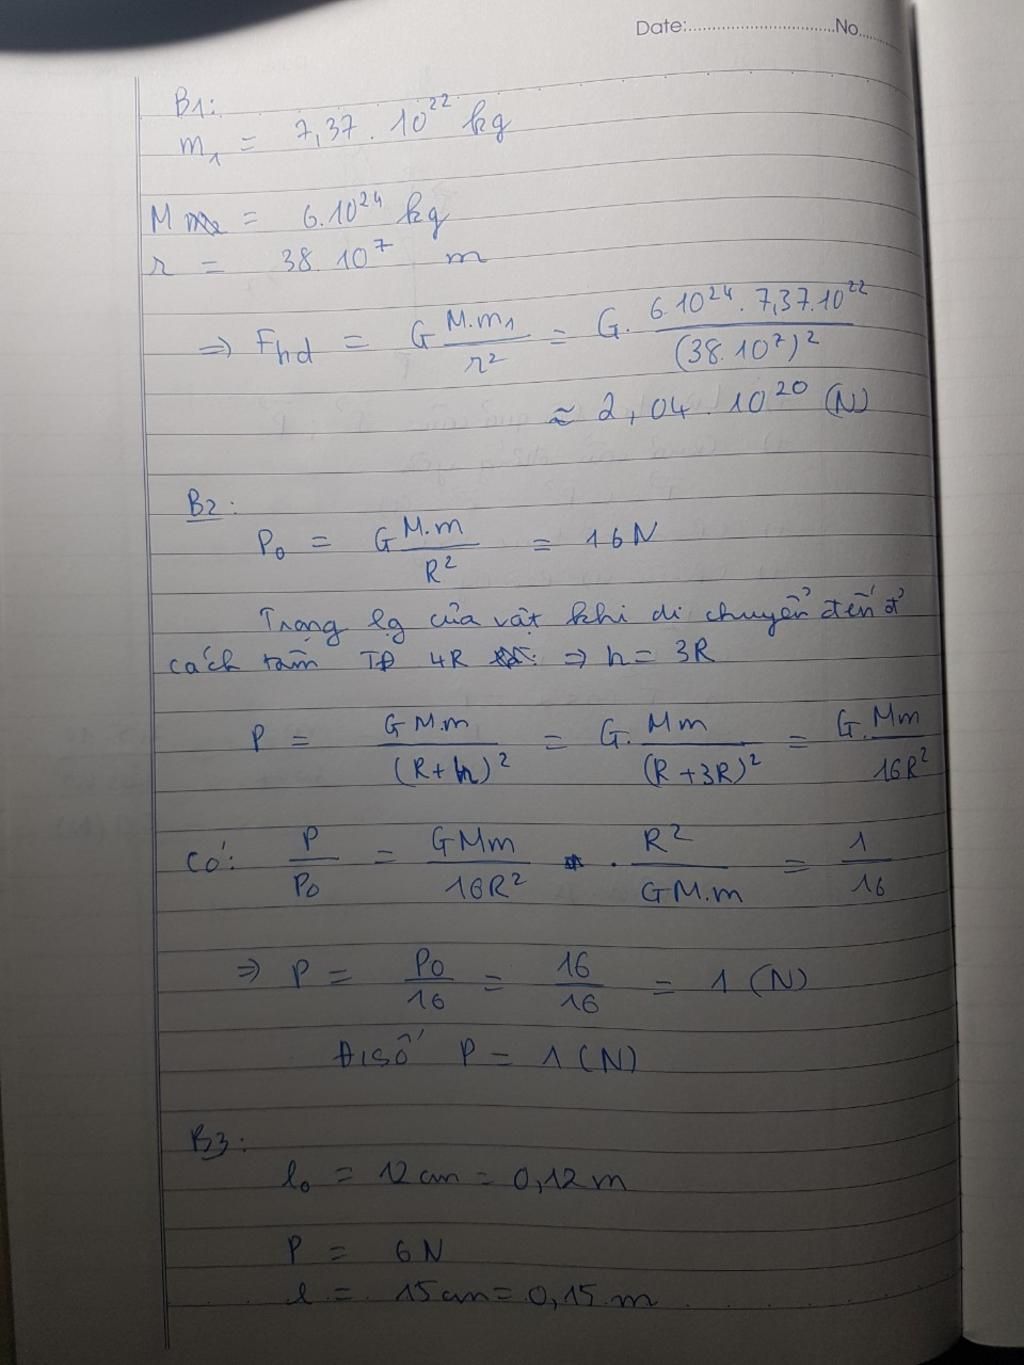 Date:................................No......
B1:
m₁ = 7,37 . 10²² kg
M = 6.10²⁴ kg
r = 38.10⁷ m
⇒ Fhd = G M.m₁/r² = G. 6.10²⁴ . 7,37.10²²/(38.10⁷)²
≈ 2,04 . 10²⁰ (N)
B2:
P₀ = G M.m/R² = 16N
Trọng lg của vật khi di chuyển đến ở
cách tâm TĐ 4R ⇒ h = 3R
P = GM.m/(R+h)² = G. Mm/(R+3R)² = G.Mm/16R²
Có: P/P₀ = GMm/16R² . R²/GM.m = 1/16
⇒ P = P₀/16 = 16/16 = 1 (N)
Đ/số P = 1 (N)
B3:
l₀ = 12cm = 0,12m
P = 6N
l = 15cm = 0,15m